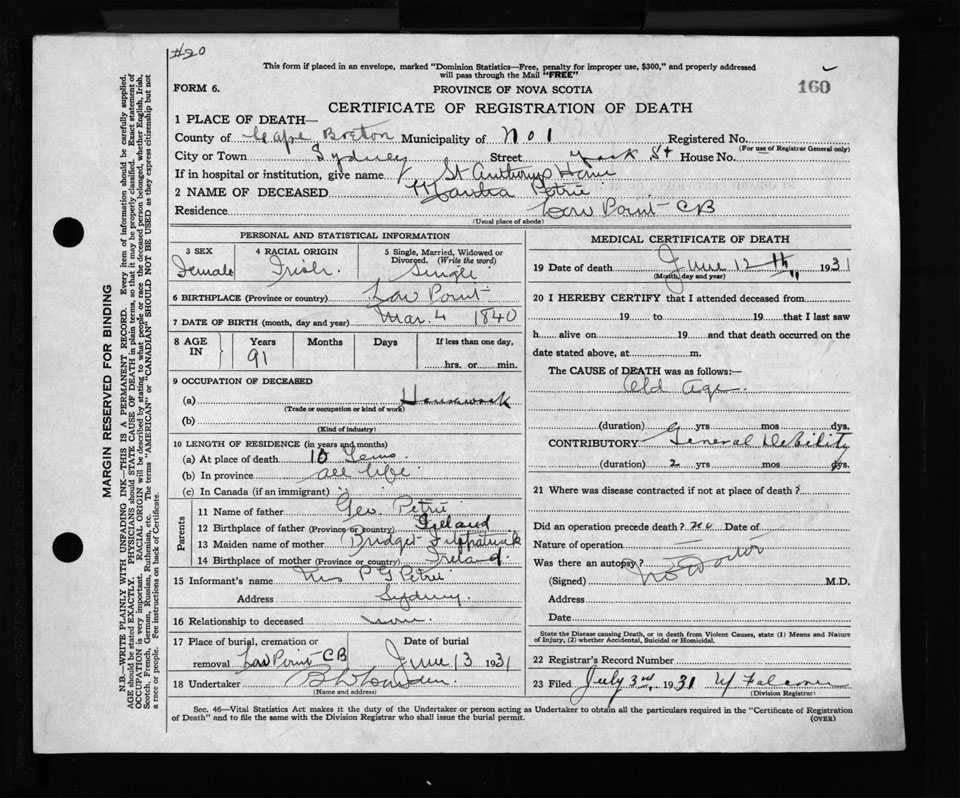 #20
This form if placed in an envelope, marked "Dominion Statistics—Free, penalty for improper use, $300," and properly addressed
will pass through the Mail "FREE"
FORM 6.
PROVINCE OF NOVA SCOTIA
160
CERTIFICATE OF REGISTRATION OF DEATH
1 PLACE OF DEATH—
County of Cape Breton Municipality of No 1 Registered No.
(For use of Registrar General only)
City or Town Sydney Street York St House No.
If in hospital or institution, give name St Anthonys Home
2 NAME OF DECEASED Petrie
Residence Low Point CB
(Usual place of abode)
PERSONAL AND STATISTICAL INFORMATION
3 SEX 4 RACIAL ORIGIN 5 Single, Married, Widowed or
Divorced. (Write the word)
Female Irish. Single
6 BIRTHPLACE (Province or country) Low Point
7 DATE OF BIRTH (month, day and year) Mar. 4 1840
8 AGE IN Years Months Days If less than one day,
91 hrs. or min.
9 OCCUPATION OF DECEASED
(a) Housework
(Trade or occupation or kind of work)
(b)
(Kind of industry)
10 LENGTH OF RESIDENCE (in years and months)
(a) At place of death 10
(b) In province all life
(c) In Canada (if an immigrant)
Parents
11 Name of father Geo. Petrie
12 Birthplace of father (Province or country) Ireland
13 Maiden name of mother Bridget Fitzpatrick
14 Birthplace of mother (Province or country) Ireland.
15 Informant's name P G Petrie
Address Sydney.
16 Relationship to deceased
17 Place of burial, cremation or Date of burial
removal Low Point CB June 13 1931
18 Undertaker
(Name and address)
MEDICAL CERTIFICATE OF DEATH
19 Date of death June 12 th 1931
(Month, day and year)
20 I HEREBY CERTIFY that I attended deceased from
19 to 19 that I last saw
h alive on 19 and that death occurred on the
date stated above, at m.
The CAUSE of DEATH was as follows:—
Old Age
(duration) yrs mos dys.
CONTRIBUTORY General Debility
(duration) 2 yrs mos dys.
21 Where was disease contracted if not at place of death?
Did an operation precede death? no Date of
Nature of operation
Was there an autopsy?
No Doctor
(Signed) M.D.
Address
Date
State the Disease causing Death, or in death from Violent Causes, state (1) Means and Nature
of Injury, (2) whether Accidental, Suicidal or Homicidal.
22 Registrar's Record Number
23 Filed July 3rd, 1931 Falconer
(Division Registrar)
Sec. 46—Vital Statistics Act makes it the duty of the Undertaker or person acting as Undertaker to obtain all the particulars required in the "Certificate of Registration
of Death" and to file the same with the Division Registrar who shall issue the burial permit.
(OVER)
MARGIN RESERVED FOR BINDING
N.B.—WRITE PLAINLY WITH UNFADING INK—THIS IS A PERMANENT RECORD. Every item of information should be carefully supplied.
AGE should be stated EXACTLY. PHYSICIANS should STATE CAUSE OF DEATH in plain terms, so that it may be properly classified. Exact statement of
OCCUPATION is very important. RACIAL ORIGIN will be described by stating to what people or race the deceased person belonged, whether English, Irish,
Scotch, French, German, Russian, Ruthenian, etc. The terms "AMERICAN" or "CANADIAN" SHOULD NOT BE USED as they express citizenship but not
a race or people. See instructions on back of Certificate.